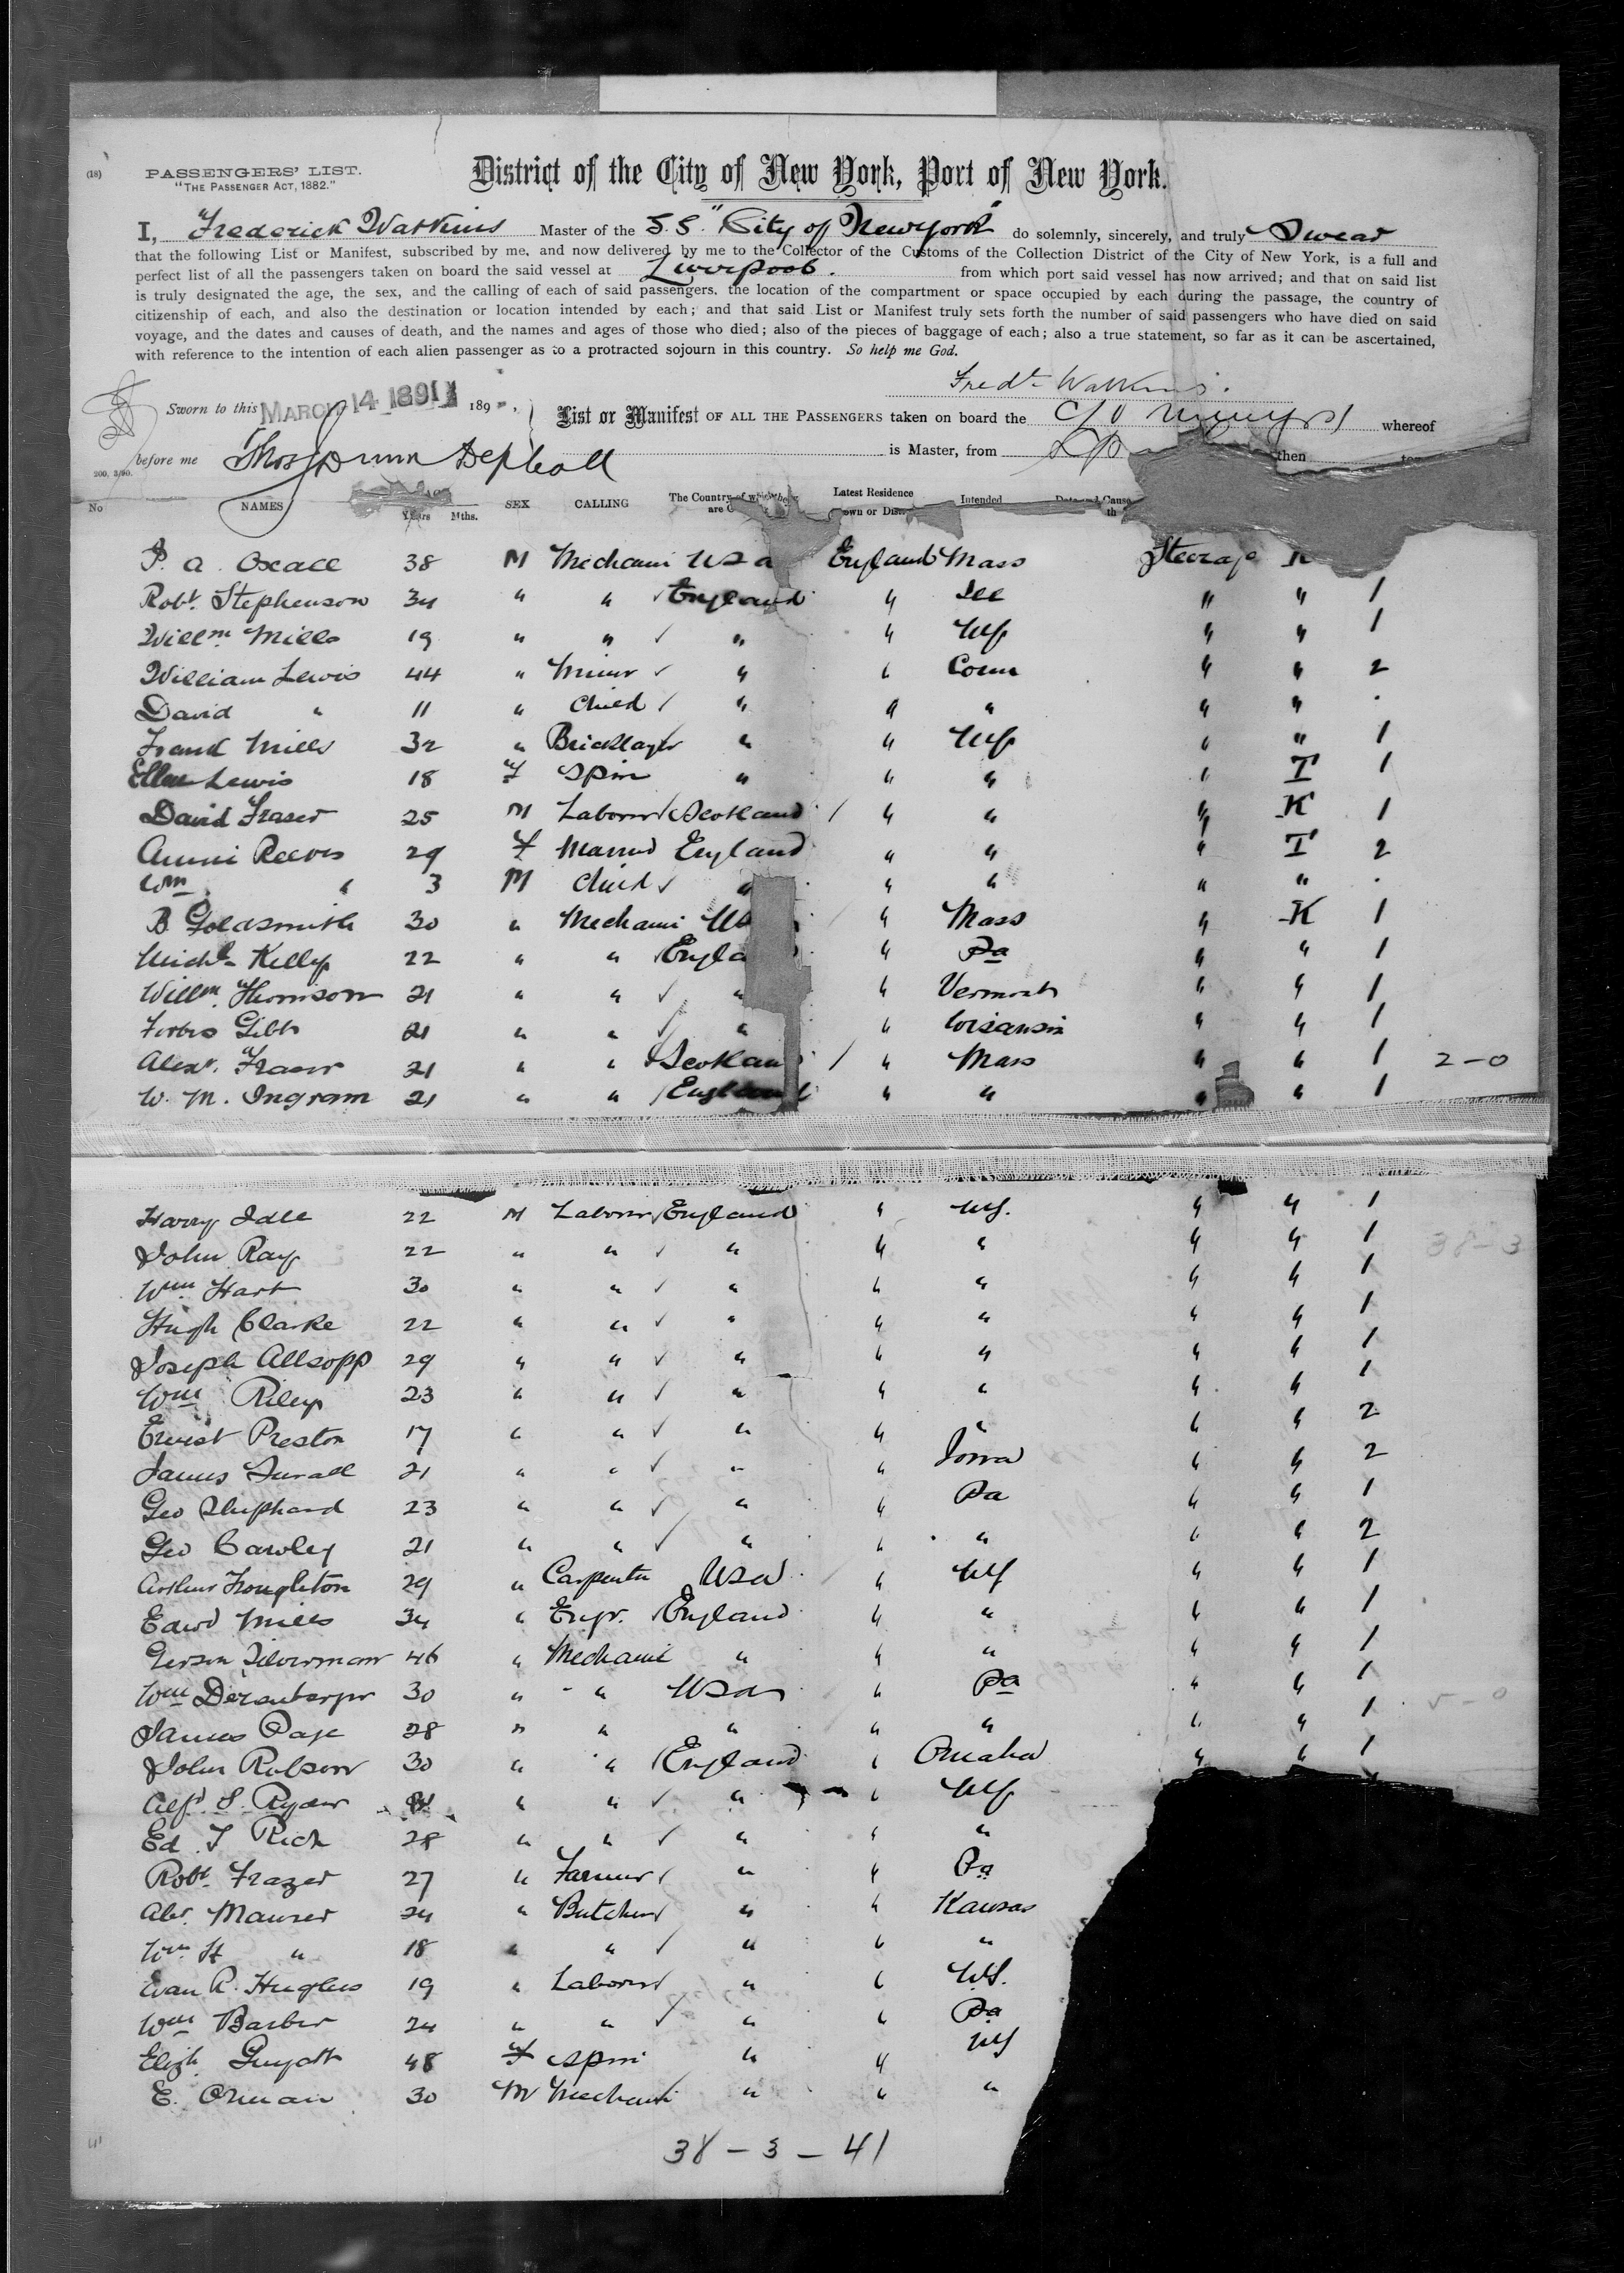 (18)
PASSENGERS' LIST.
"THE PASSENGER ACT, 1882."
District of the City of New York, Port of New York.
I, Frederick Watkins Master of the S.S. "City of New York" do solemnly, sincerely, and truly Swear
that the following List or Manifest, subscribed by me, and now delivered by me to the Collector of the Customs of the Collection District of the City of New York, is a full and
perfect list of all the passengers taken on board the said vessel at Liverpool. from which port said vessel has now arrived; and that on said list
is truly designated the age, the sex, and the calling of each of said passengers, the location of the compartment or space occupied by each during the passage, the country of
citizenship of each, and also the destination or location intended by each; and that said List or Manifest truly sets forth the number of said passengers who have died on said
voyage, and the dates and causes of death, and the names and ages of those who died; also of the pieces of baggage of each; also a true statement, so far as it can be ascertained,
with reference to the intention of each alien passenger as to a protracted sojourn in this country. So help me God.
Fredk Watkins.
Sworn to this MARCH 14 1891 189 , List or Manifest OF ALL THE PASSENGERS taken on board the whereof
before me is Master, from then
No NAMES Years Mths. SEX CALLING The Country of which they are Latest Residence Town or Intended Date and Cause
P. A. 38 M Mechanic USA England Mass Steerage K
Robt. Stephenson 34 " " ✓ England " Ill " " 1
Willm. Mills 19 " " ✓ " " NY " " 1
William Lewis 44 " Miner ✓ " " Conn " " 2
David " 11 " Child ✓ " " " " " .
Frank Mills 32 " Bricklayer " " NY " " 1
Ellen Lewis 18 F Spin " " " " T 1
David Fraser 25 M Laborer ✓ Scotland / " " " K 1
Annie Reeves 29 F Married England " " " T 2
Wm " 3 M Child ✓ " " " " " .
B. Goldsmith 30 " Mechanic US / " Mass " K 1
Michl. Kelly 22 " " ✓ Engla " Pa " " 1
Willm. Thomson 21 " " ✓ " " Vermont " " 1
Forbes Gibb 21 " " ✓ " " Wisconsin " " 1
Alexr. Fraser 21 " " ✓ Scotland / " Mass " " 1 2-0
W. M. Ingram 21 " " ✓ England " " " " 1
Harry Idle 22 M Laborer ✓ England " NY. " " 1
John Ray 22 " " ✓ " " " " " 1 38-3
Wm. Hart 30 " " ✓ " " " " " 1
Hugh Clarke 22 " " ✓ " " " " " 1
Joseph Allsopp 29 " " ✓ " " " " " 1
Wm Riley 23 " " ✓ " " " " " 1
Ernest Preston 17 " " ✓ " " " " " 2
James 21 " " ✓ " " Iowa " " 2
Geo Shephard 23 " " ✓ " " Pa " " 1
Geo Cawley 21 " " ✓ " " " " " 2
Arthur Troughton 29 " Carpenter USA / " NY " " 1
Edwd Mills 34 " Engr. ✓ England " " " " 1
Gerson Silverman 46 " Mechanic " " " " " 1
Wm 30 " " USA " Pa " " 1 5-0
James Page 28 " " " " " " " 1
John Robson 30 " " ✓ England " Omaha " " 1
Alfd. S. Ryder " " ✓ " " NY
Ed. T Rich 28 " " ✓ " " "
Robt. Frazer 27 " Farmer ✓ " " Pa
Alex. Maurer 24 " Butcher ✓ " " Kansas
Wm. H " 18 " " ✓ " " "
Evan R. Hughes 19 " Laborer ✓ " " NY.
Wm Barber 24 " " ✓ " " Pa
Elizh. Guyatt 48 F Spin " " NY
E. Orman 30 M Mechanic " " "
38 - 3 - 41